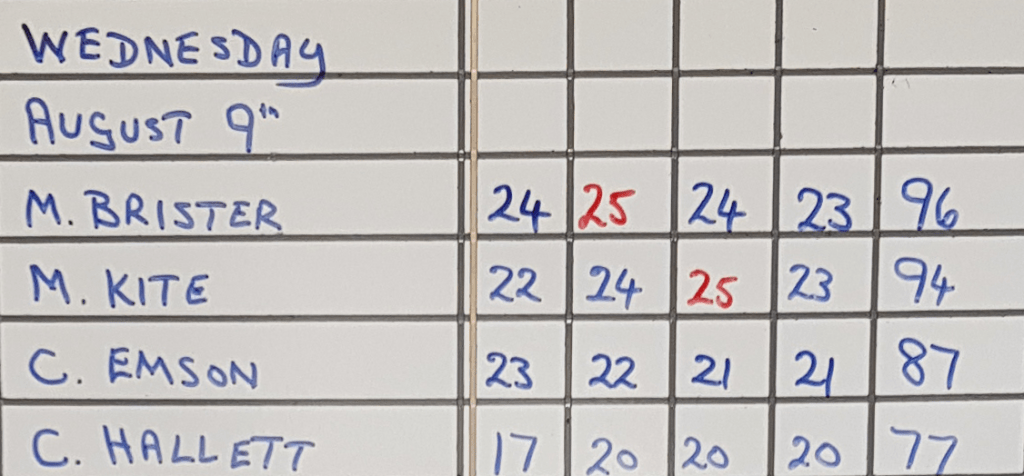 WEDNESDAY
AUGUST 9th
M. BRISTER 24 25 24 23 96
M. KITE 22 24 25 23 94
C. EMSON 23 22 21 21 87
C. HALLETT 17 20 20 20 77